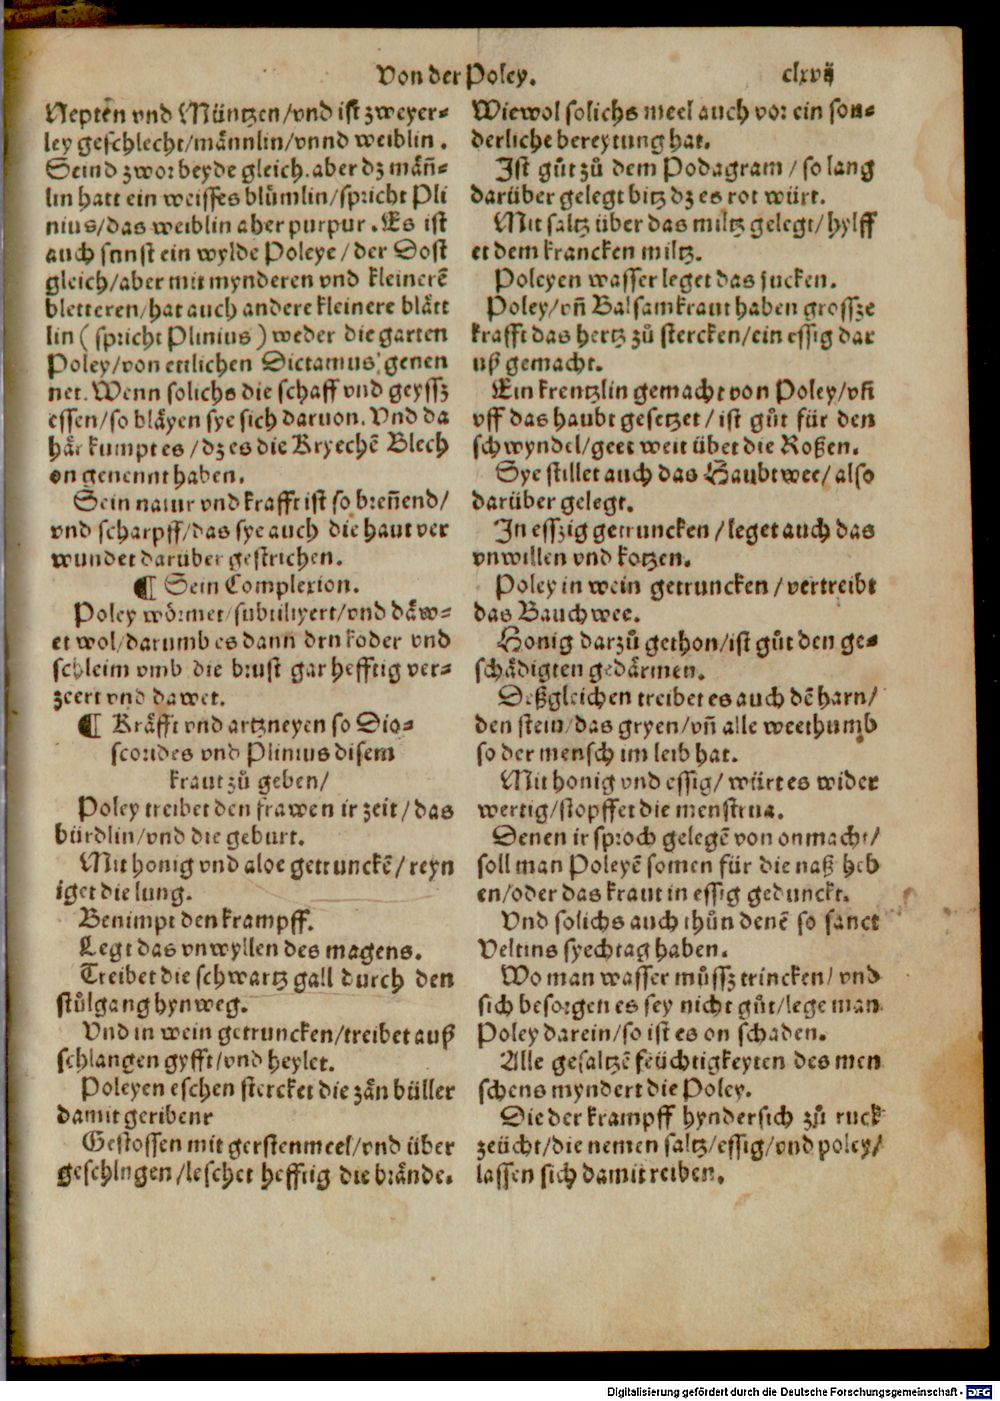 Von der Poley.
clxvij
Nepten vnd Müntzen/vnd ist zweyer⸗
ley geschlecht/männlin/vnnd weiblin.
Seind zwor beyde gleich. aber dz mäñ⸗
lin hatt ein weisses blümlin/spricht Pli
nius/das weiblin aber purpur. Es ist
auch sunst ein wylde Poleye/der Dost
gleich/aber mit mynderen vnd kleinerē
bletteren/hat auch andere kleinere blätt
lin (spricht Plinius) weder die garten
Poley/von ettlichen Dictamus genen
net. Wenn solichs die schaff vnd geyssz
essen/so bläyen sye sich daruon. Vnd da
här kumpt es/dz es die Kryechē Blech
on genennt haben.
Sein natur vnd krafft ist so breñend/
vnd scharpff/das sye auch die haut ver
wundet darüber gestrichen.
¶ Sein Complexion.
Poley wörmet/subtiliyert/vnd däw⸗
et wol/darumb es dann den koder vnd
schleim vmb die brust gar hefftig ver⸗
zeert vnd dawet.
¶ Kräfft vnd artzneyen so Dio⸗
scorides vnd Plinius disem
kraut zů geben/
Poley treibet den frawen ir zeit/das
bürdlin/vnd die geburt.
Mit honig vnd aloe getrunckē/reyn
iget die lung.
Benimpt den krampff.
Legt das vnwyllen des magens.
Treibet die schwartz gall durch den
stůlgang hynweg.
Vnd in wein getruncken/treibet auß
schlangen gyfft/vnd heylet.
Poleyen eschen stercket die zän büller
damit geribenr
Gestossen mit gerstenmeel/vnd über
geschlagen/leschet hefftig die brände.
Wiewol solichs meel auch vor ein son⸗
derliche bereytung hat.
Ist gůt zů dem Podagram/so lang
darüber gelegt bitz dz es rot würt.
Mit saltz über das miltz gelegt/hylff
et dem krancken miltz.
Poleyen wasser leget das jucken.
Poley/vñ Balsamkraut haben grossze
krafft das hertz zů stercken/ein essig dar
uß gemacht.
Ein krentzlin gemacht von Poley/vñ
vff das haubt gesetzet/ist gůt für den
schwyndel/geet weit übet die Roßen.
Sye stillet auch das Haubtwee/also
darüber gelegt.
In esszig getruncken/leget auch das
vnwillen vnd kotzen.
Poley in wein getruncken/vertreibt
das Bauchwee.
Honig darzů gethon/ist gůt den ge⸗
schädigten gedärmen.
Deßgleichen treibet es auch dē harn/
den stein/das gryen/vñ alle weethumb
so der mensch im leib hat.
Mit honig vnd essig/würt es wider
wertig/stopffet die menstrua.
Denen ir sproch gelegē von onmacht/
soll man Poleyē somen für die naß heb
en/oder das kraut in essig gedunckt.
Vnd solichs auch thůn denē so sanct
Veltins syechtag haben.
Wo man wasser můssz trincken/vnd
sich besorgen es sey nicht gůt/lege man
Poley darein/so ist es on schaden.
Alle gesaltzē feüchtigkeyten des men
schens myndert die Poley.
Die der krampff hyndersich zů ruck
zeücht/die nemen saltz/essig/vnd poley/
lassen sich damit reiben.
Digitalisierung gefördert durch die Deutsche Forschungsgemeinschaft - DFG